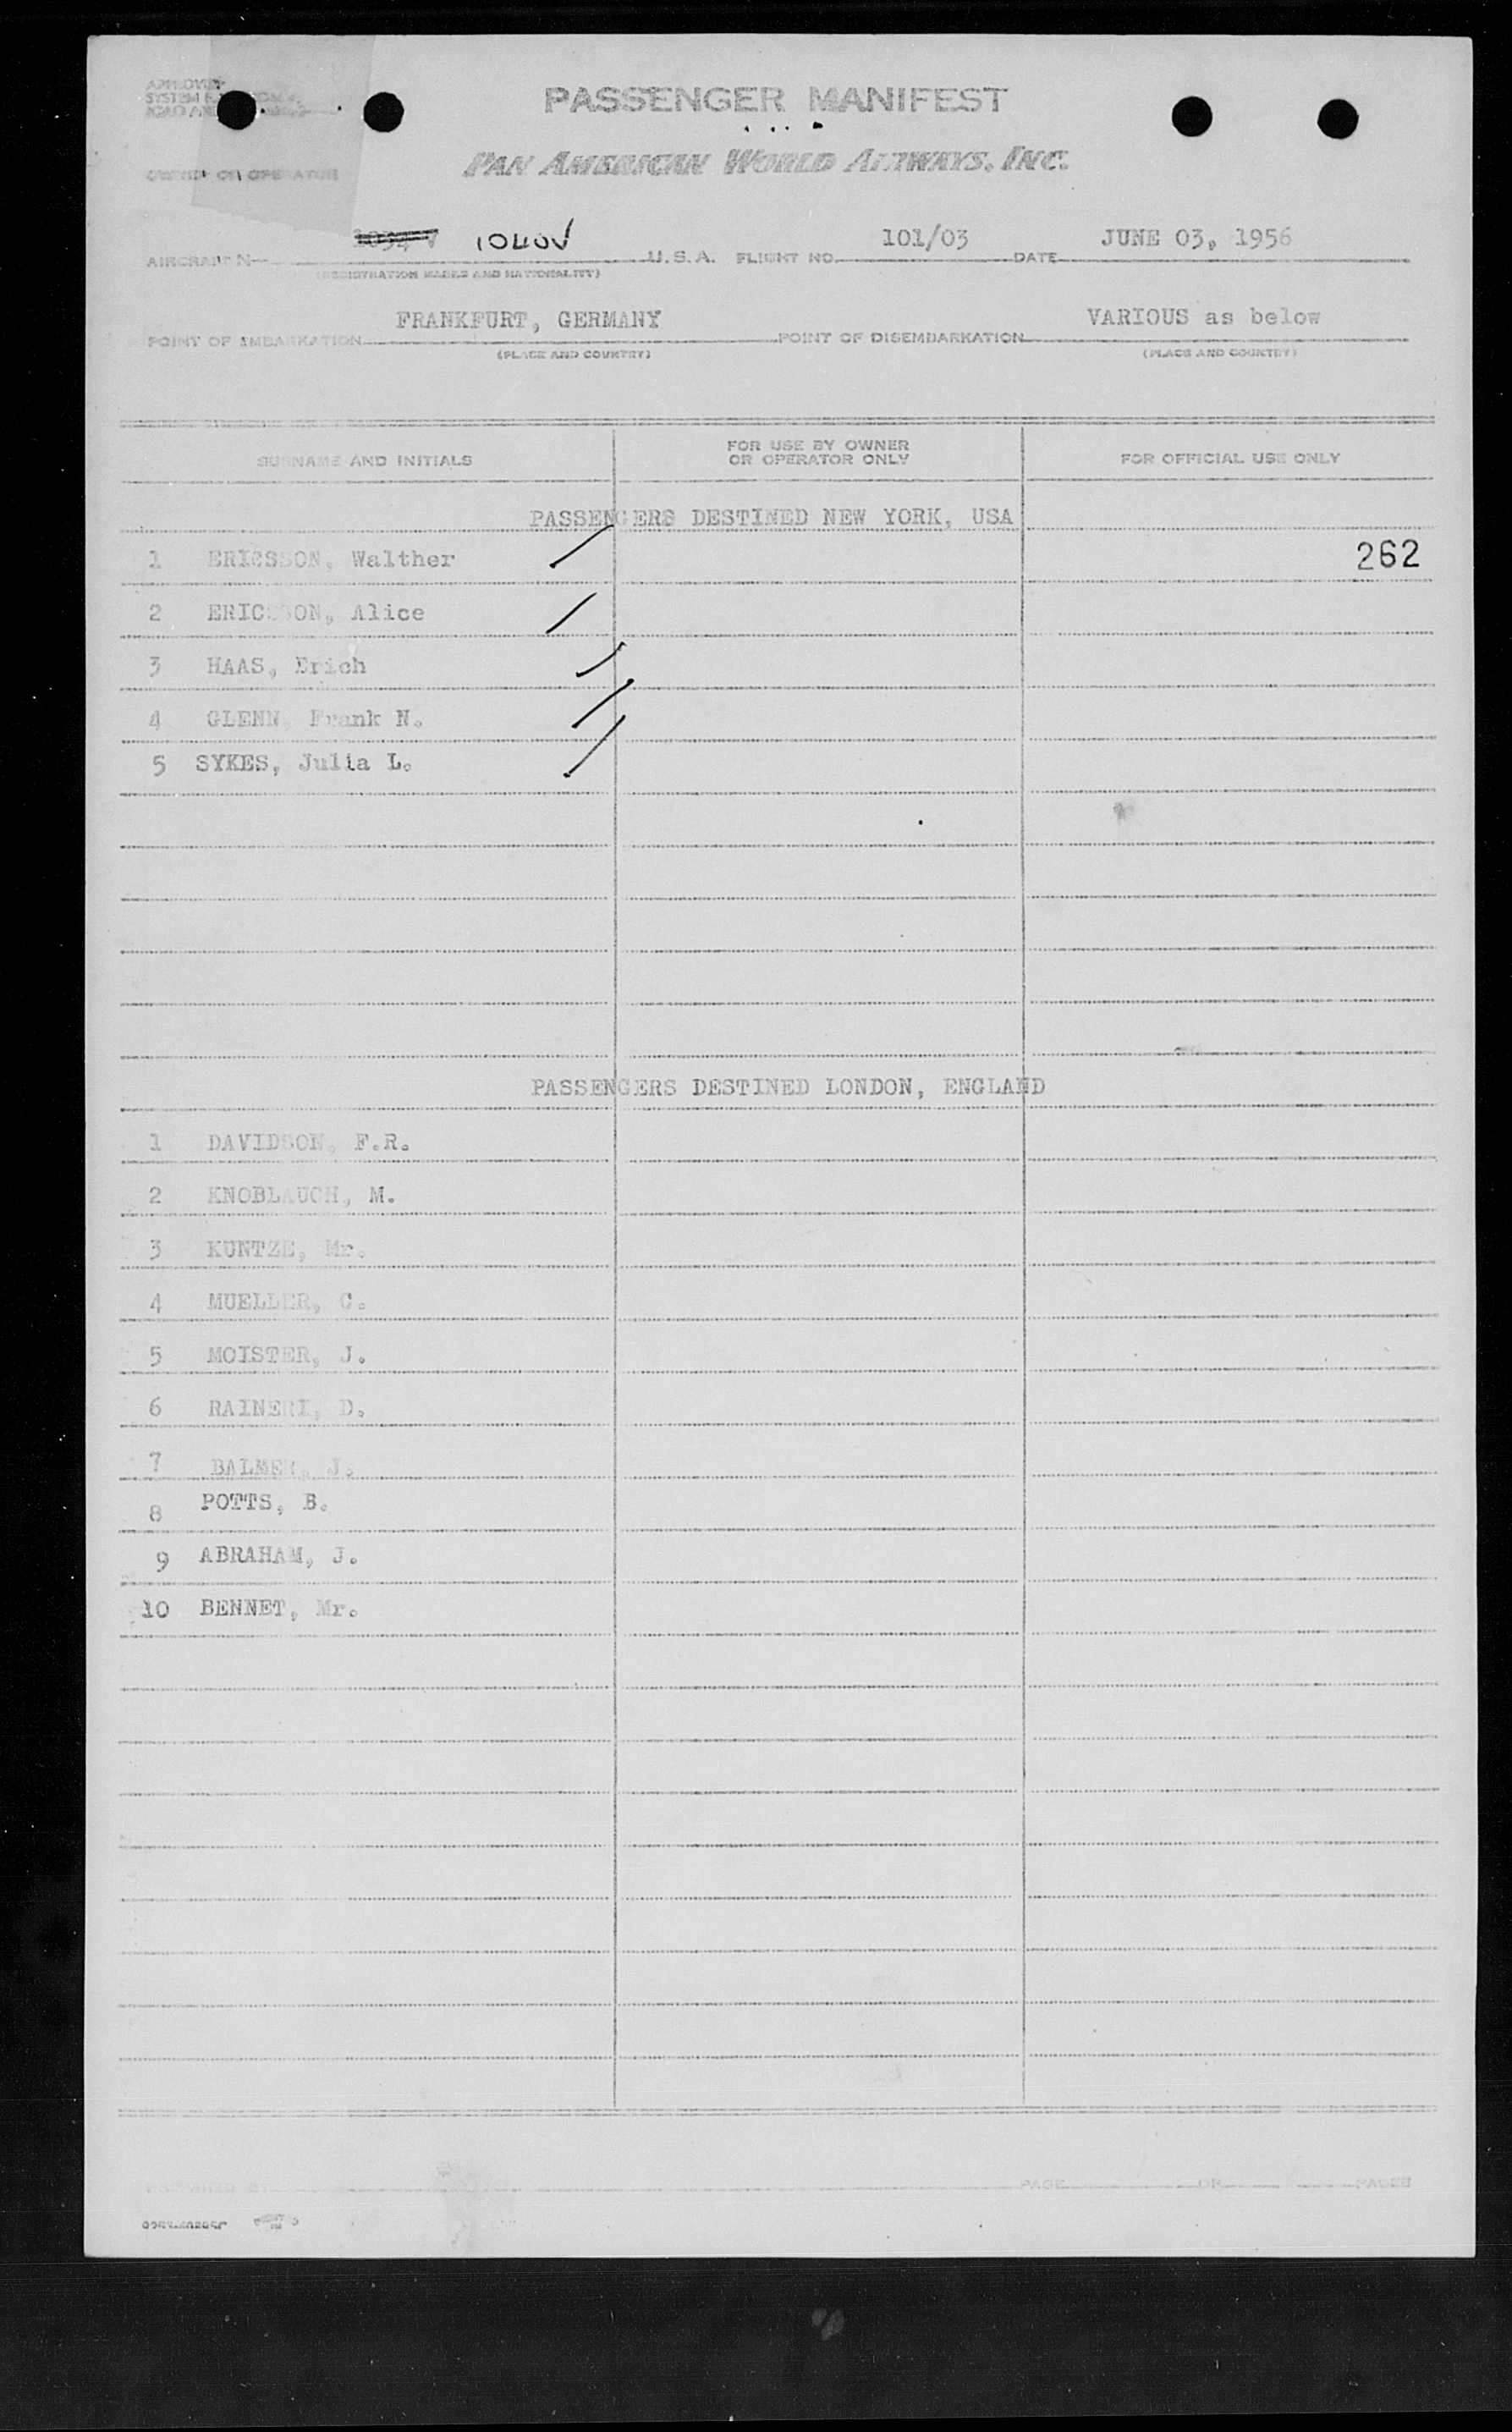 APPROVED
PASSENGER MANIFEST
PAN AMERICAN WORLD AIRWAYS, INC.
OWNER OR OPERATOR
1040V
AIRCRAFT N- U.S.A. FLIGHT NO. 101/03 DATE JUNE 03, 1956
(REGISTRATION MARKS AND NATIONALITY)
POINT OF EMBARKATION FRANKFURT, GERMANY POINT OF DISEMBARKATION VARIOUS as below
(PLACE AND COUNTRY) (PLACE AND COUNTRY)
SURNAME AND INITIALS FOR USE BY OWNER OR OPERATOR ONLY FOR OFFICIAL USE ONLY
PASSENGERS DESTINED NEW YORK, USA
1 ERICSSON, Walther 262
2 ERICSSON, Alice
3 HAAS, Erich
4 GLENN, Frank N.
5 SYKES, Julia L.
PASSENGERS DESTINED LONDON, ENGLAND
1 DAVIDSON, F.R.
2 KNOBLAUCH, M.
3 KUNTZE, Mr.
4 MUELLER, C.
5 MOISTER, J.
6 RAINERI, D.
7 BALMER, J.
8 POTTS, B.
9 ABRAHAM, J.
10 BENNET, Mr.
PAGE OF PAGES